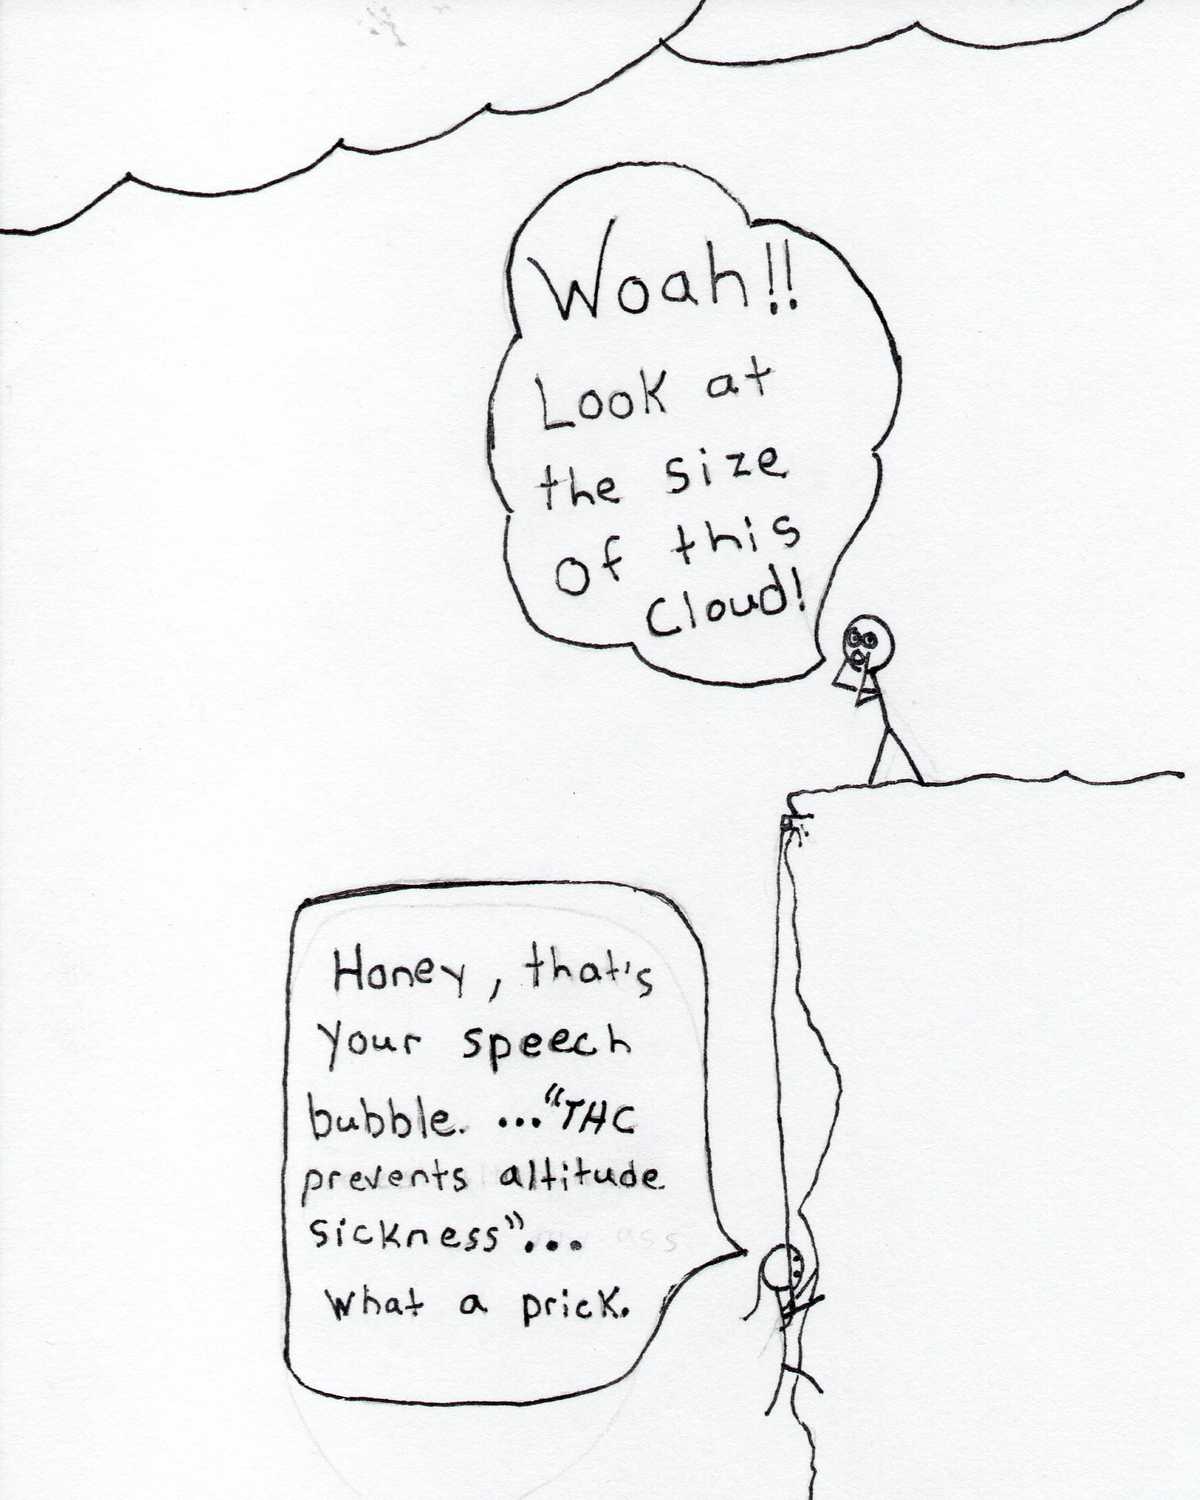 Woah!!
Look at
the size
of this
Cloud!
Honey, that's
your speech
bubble. ..."THC
prevents altitude
sickness"...
what a prick.